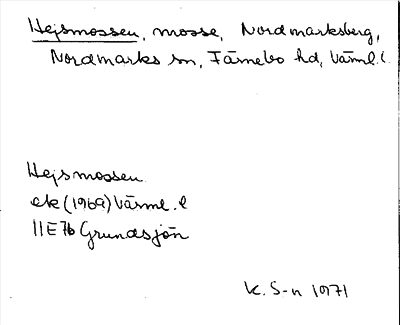 Hejsmossen, mosse, Nordmarksberg,
Nordmarks sn, Färnebo hd, Värml. l.
Hejsmossen
ek (1969) Värml. l
11E7b Grundsjön
K. S-n 1971